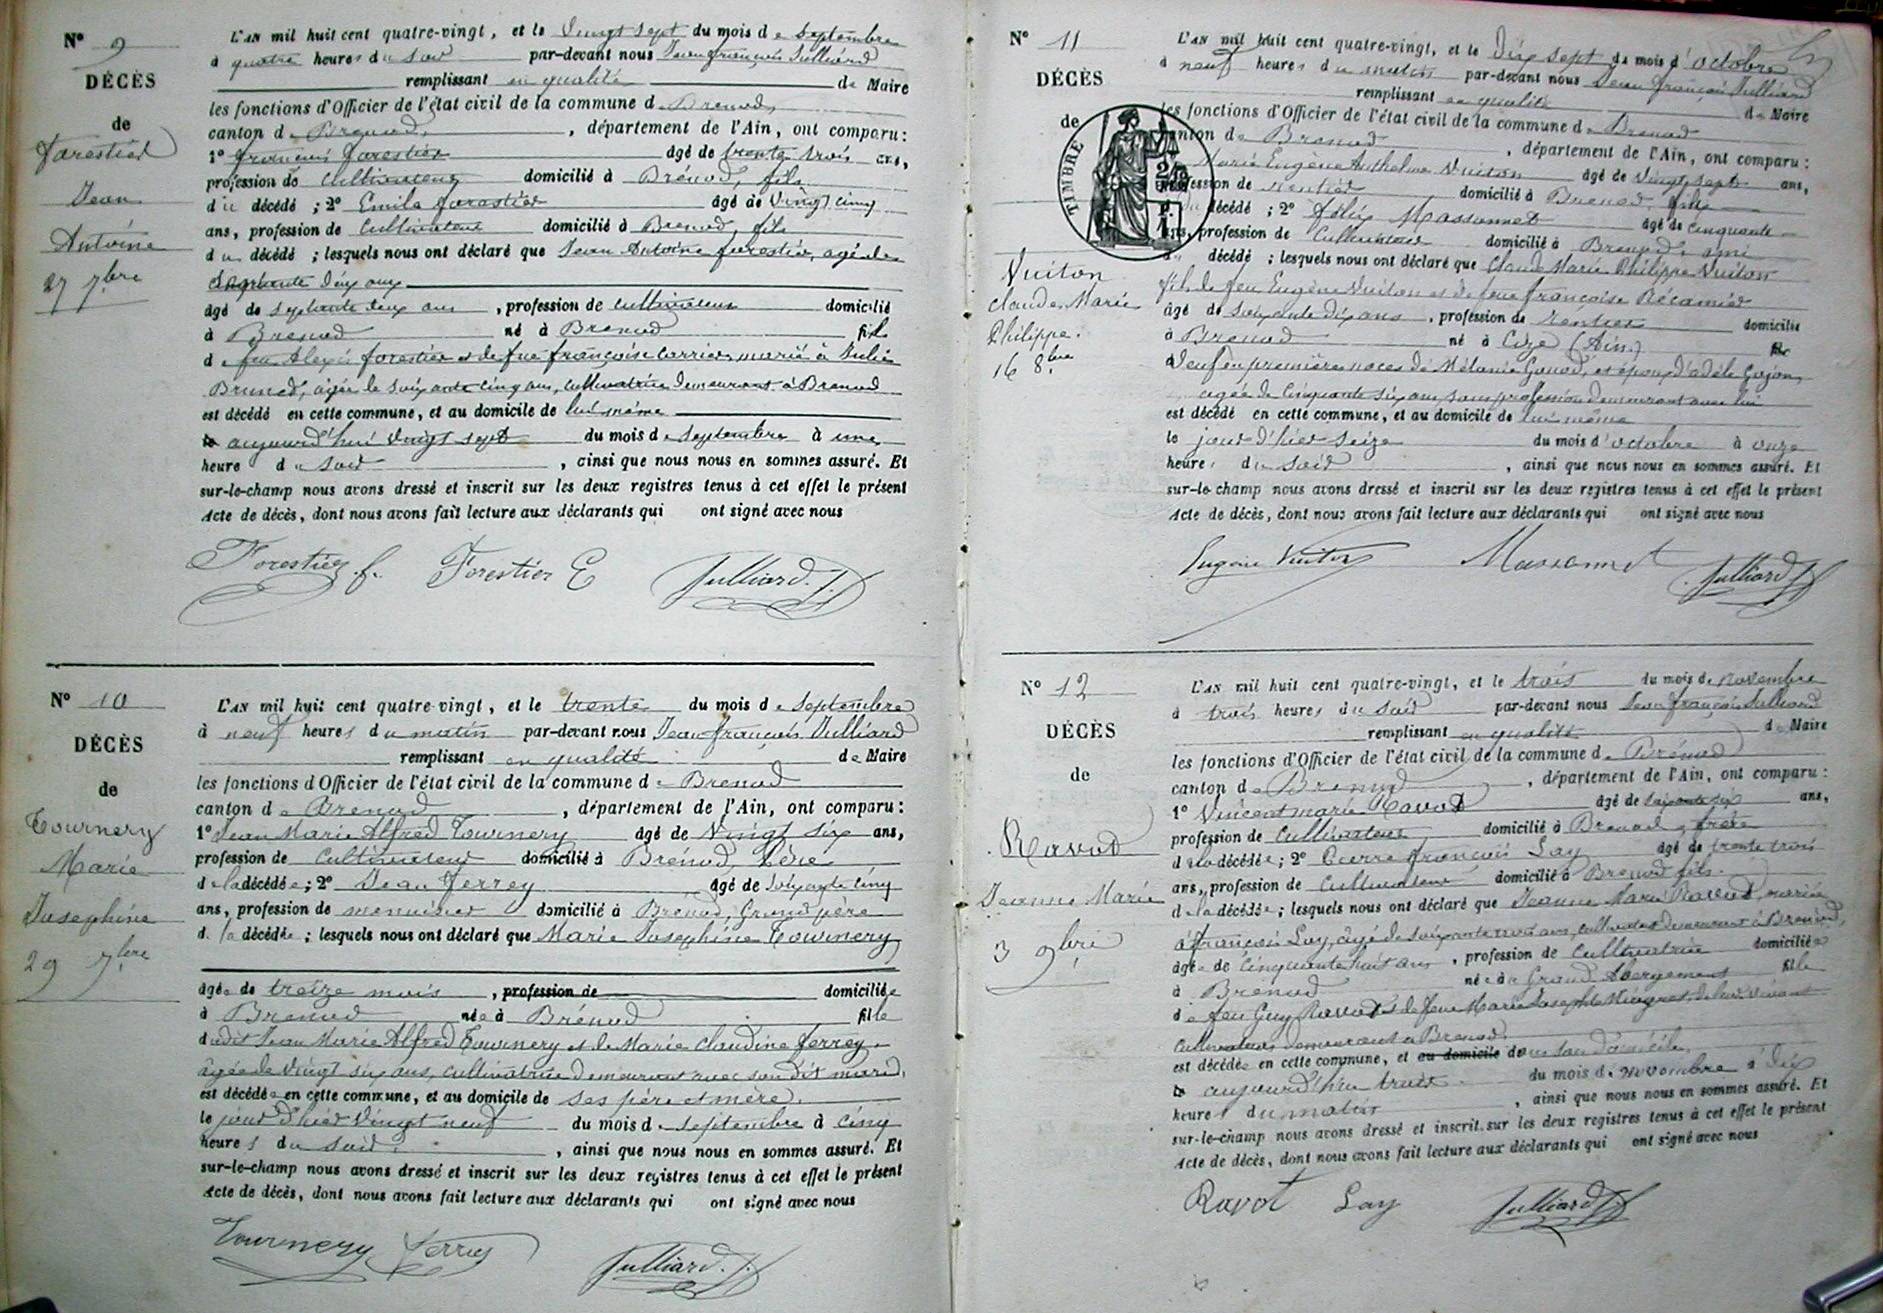 N° 9
DÉCÈS
de
Forestier
Jean
Antoine
27 7bre
L'AN mil huit cent quatre-vingt, et le Vingt sept du mois de Septembre
à quatre heures du soir par-devant nous Jean françois Julliard
remplissant en qualité de Maire
les fonctions d'Officier de l'état civil de la commune de Brenod,
canton de Brenod, , département de l'Ain, ont comparu :
1° françois forestier âgé de trente trois ans,
profession de cultivateur domicilié à Brénod, fils
du décédé ; 2° Emile forestier âgé de Vingt cinq
ans, profession de Cultivateur domicilié à Brenod, fils
du décédé ; lesquels nous ont déclaré que Jean Antoine forestier, agé de
deux ans
âgé de septante deux ans , profession de cultivateur domicilié
à Brenod né à Brenod fils
de feu Alexis forestier et de feue françoise Carrier, marié à Julie
Brunet, agée de soixante cinq ans, cultivatrice demeurant à Brenod
est décédé en cette commune, et au domicile de lui même
le aujourd'hui vingt sept du mois de septembre à une
heure du soir , ainsi que nous nous en sommes assuré. Et
sur-le-champ nous avons dressé et inscrit sur les deux registres tenus à cet effet le présent
Acte de décès, dont nous avons fait lecture aux déclarants qui ont signé avec nous
Forestier f. Forestier E Julliard J.
N° 10
DÉCÈS
de
Tournery
Marie
Josephine
29 7bre
L'AN mil huit cent quatre-vingt, et le trente du mois de septembre
à neuf heures du matin par-devant nous Jean françois Julliard
remplissant en qualité de Maire
les fonctions d'Officier de l'état civil de la commune de Brenod
canton de Brenod , département de l'Ain, ont comparu :
1° Jean Marie Alfred Tournery âgé de Vingt six ans,
profession de cultivateur domicilié à Brénod, Père
de la décédée ; 2° Jean ferrey âgé de soixante cinq
ans, profession de menuisier domicilié à Brenod, Grand père
de la décédée ; lesquels nous ont déclaré que Marie Josephine Tournery
âgée de treize mois , profession de domiciliée
à Brenod née à Brénod fille
dudit Jean Marie Alfred Tournery et de Marie Claudine ferrey,
agée de vingt six ans, cultivatrice demeurant avec son dit mari,
est décédée en cette commune, et au domicile de ses père et mère.
le jour d'hier Vingt neuf du mois de septembre à cinq
heures du soir. , ainsi que nous nous en sommes assuré. Et
sur-le-champ nous avons dressé et inscrit sur les deux registres tenus à cet effet le présent
Acte de décès, dont nous avons fait lecture aux déclarants qui ont signé avec nous
Tournery ferrey Julliard J.
N° 11
DÉCÈS
de
TIMBRE
Vuiton
Claude Marie
Philippe.
16 8bre
L'AN mil huit cent quatre-vingt, et le Dix sept du mois d'octobre
à neuf heures du matin par-devant nous Jean françois Julliard
remplissant en qualité de Maire
les fonctions d'Officier de l'état civil de la commune de Brenod
canton de Brenod , département de l'Ain, ont comparu :
Marie Eugène Anthelme Vuiton âgé de Vingt sept ans,
profession de rentier domicilié à Brenod, fils
du décédé ; 2° félix Massonnet âgé de cinquante
ans, profession de Cultivateur domicilié à Brenod, ami
du décédé ; lesquels nous ont déclaré que Claude Marie Philippe Vuiton
fils de feu Eugène Vuiton et de feue françoise Récamier
âgé de soixante dix ans , profession de rentier domicilié
à Brenod né à Cize (Ain)
Veuf en premières noces de Mélanie Gonod, et époux d'adèle Gojon,
agée de cinquante six ans sans profession demeurant avec lui
est décédé en cette commune, et au domicile de lui même
le jour d'hier seize du mois d'octobre à onze
heures du soir , ainsi que nous nous en sommes assuré. Et
sur-le-champ nous avons dressé et inscrit sur les deux registres tenus à cet effet le présent
Acte de décès, dont nous avons fait lecture aux déclarants qui ont signé avec nous
Eugène Vuiton Massonnet Julliard J.
N° 12
DÉCÈS
de
Ravot
Jeanne Marie
3 9bre
L'AN mil huit cent quatre-vingt, et le trois du mois de novembre
à trois heures du soir par-devant nous Jean françois Julliard
remplissant en qualité de Maire
les fonctions d'Officier de l'état civil de la commune de Brénod
canton de Brenod , département de l'Ain, ont comparu :
1° Vincent marie Ravot âgé de soixante six ans,
profession de Cultivateur domicilié à Brenod, frère
de la décédée ; 2° Pierre françois Lay âgé de trente trois
ans, profession de Cultivateur domicilié à Brenod fils
de la décédée ; lesquels nous ont déclaré que Jeanne Marie Ravot, mariée
à françois Lay, âgé de soixante trois ans, cultivateur demeurant à Brenod,
âgée de cinquante huit ans , profession de Cultivatrice domiciliée
à Brenod née à Grand Abergement fille
de feu Guy Ravot et de feue Marie Josephte de leur vivant
cultivateurs demeurant à Brenod,
est décédée en cette commune, et au domicile dans son domicile,
le aujourd'hui trois du mois de novembre à dix
heures du matin , ainsi que nous nous en sommes assuré. Et
sur-le-champ nous avons dressé et inscrit sur les deux registres tenus à cet effet le présent
Acte de décès, dont nous avons fait lecture aux déclarants qui ont signé avec nous
Ravot Lay Julliard J.